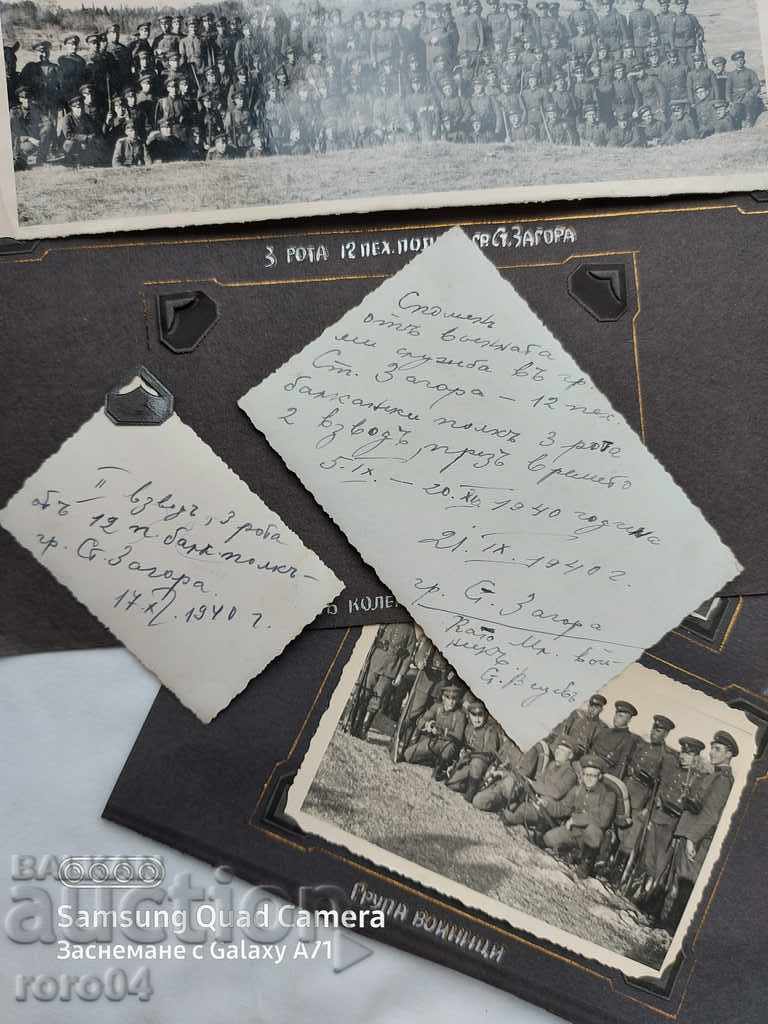 3 РОТА 12 ПЕХ. ПОЛ ГР. СТ. ЗАГОРА
Споменъ
отъ военната
ми служба въ гр.
Ст. Загора – 12 пех.
балкански полкъ 3 рота
2 взводъ, презъ времето
5.IX. – 20.XII 1940 година
21.IX.1940 г.
гр. Ст. Загора
Като Мл. вой-
никъ.
II взводъ, 3 рота
отъ 12 п. балк. полкъ –
гр. Ст. Загора.
17.XI.1940 г.
Ъ КОЛЕ
ГРУПА ВОЙНИЦИ
БАЛКАН
auction
roro04
Samsung Quad Camera
Заснемане с Galaxy A71